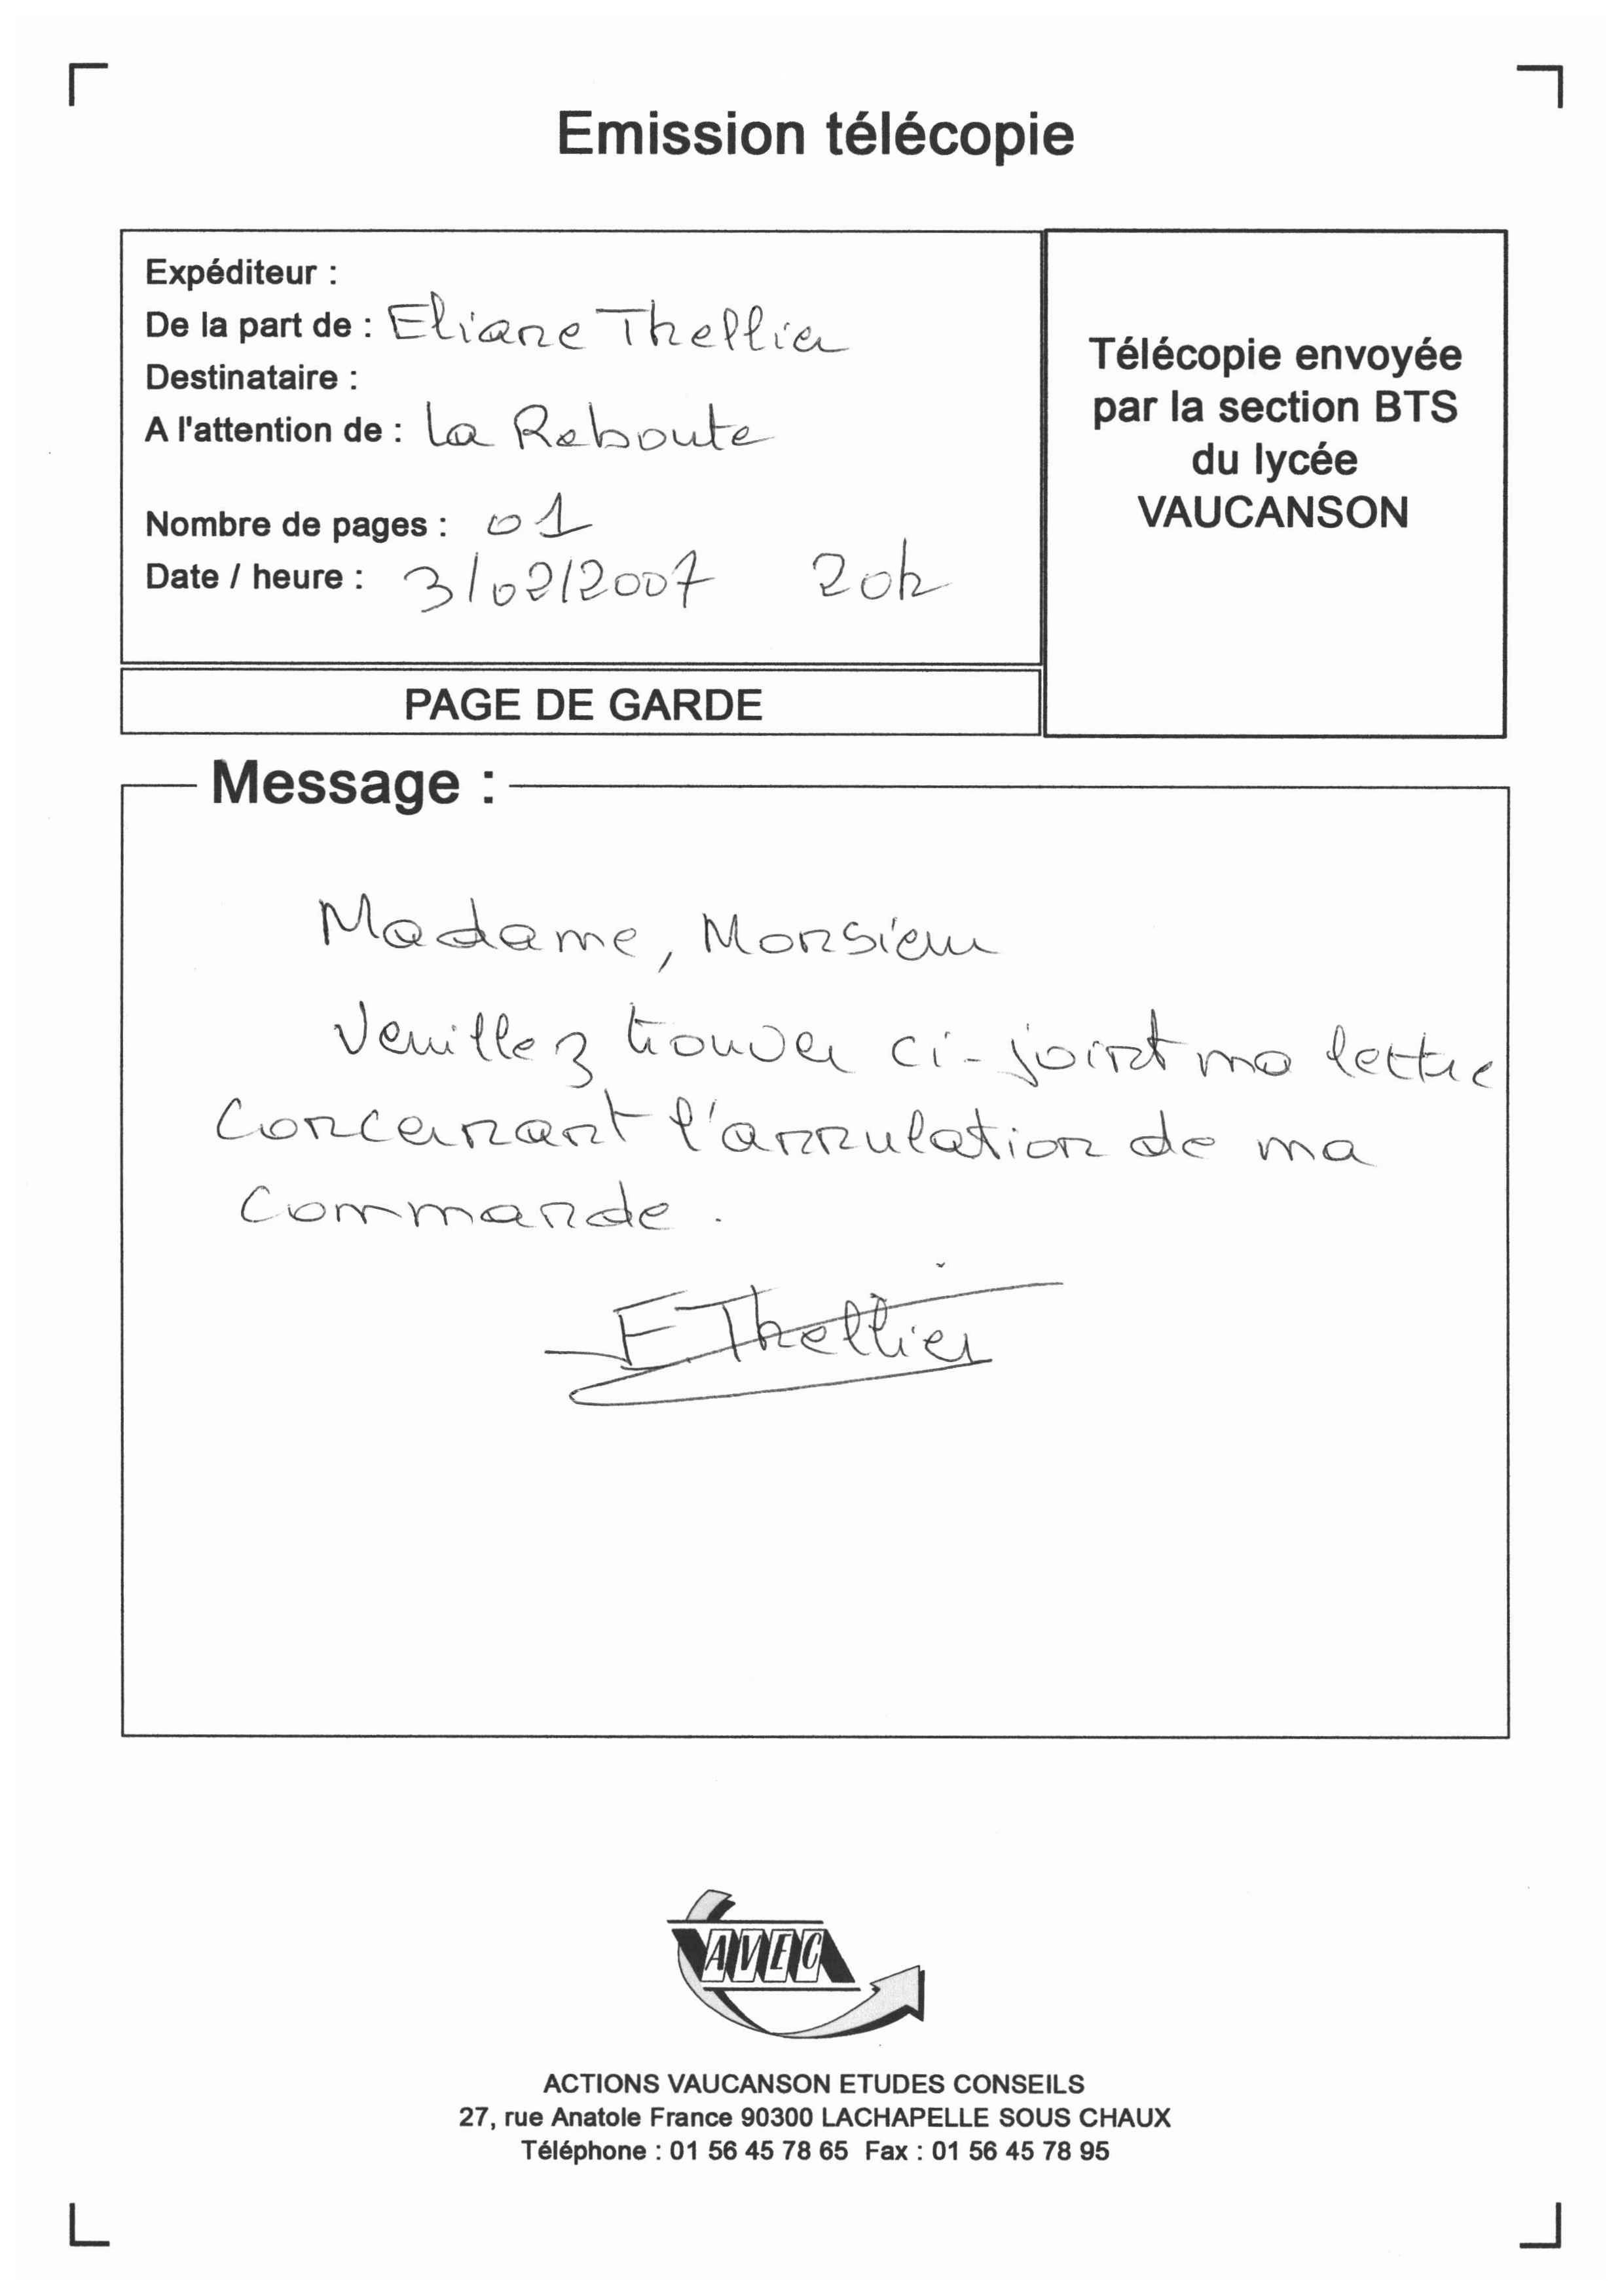 Emission télécopie
Expéditeur :
De la part de : Eliane Thellier
Destinataire :
A l'attention de : La Reboute
Nombre de pages : 01
Date / heure : 3/02/2007 20h
PAGE DE GARDE
Télécopie envoyée
par la section BTS
du lycée
VAUCANSON
Message :
Madame, Monsieur
Veuillez trouver ci-joint ma lettre
Concernant l'annulation de ma
Commande.
E Thellier
AVEC
ACTIONS VAUCANSON ETUDES CONSEILS
27, rue Anatole France 90300 LACHAPELLE SOUS CHAUX
Téléphone : 01 56 45 78 65 Fax : 01 56 45 78 95